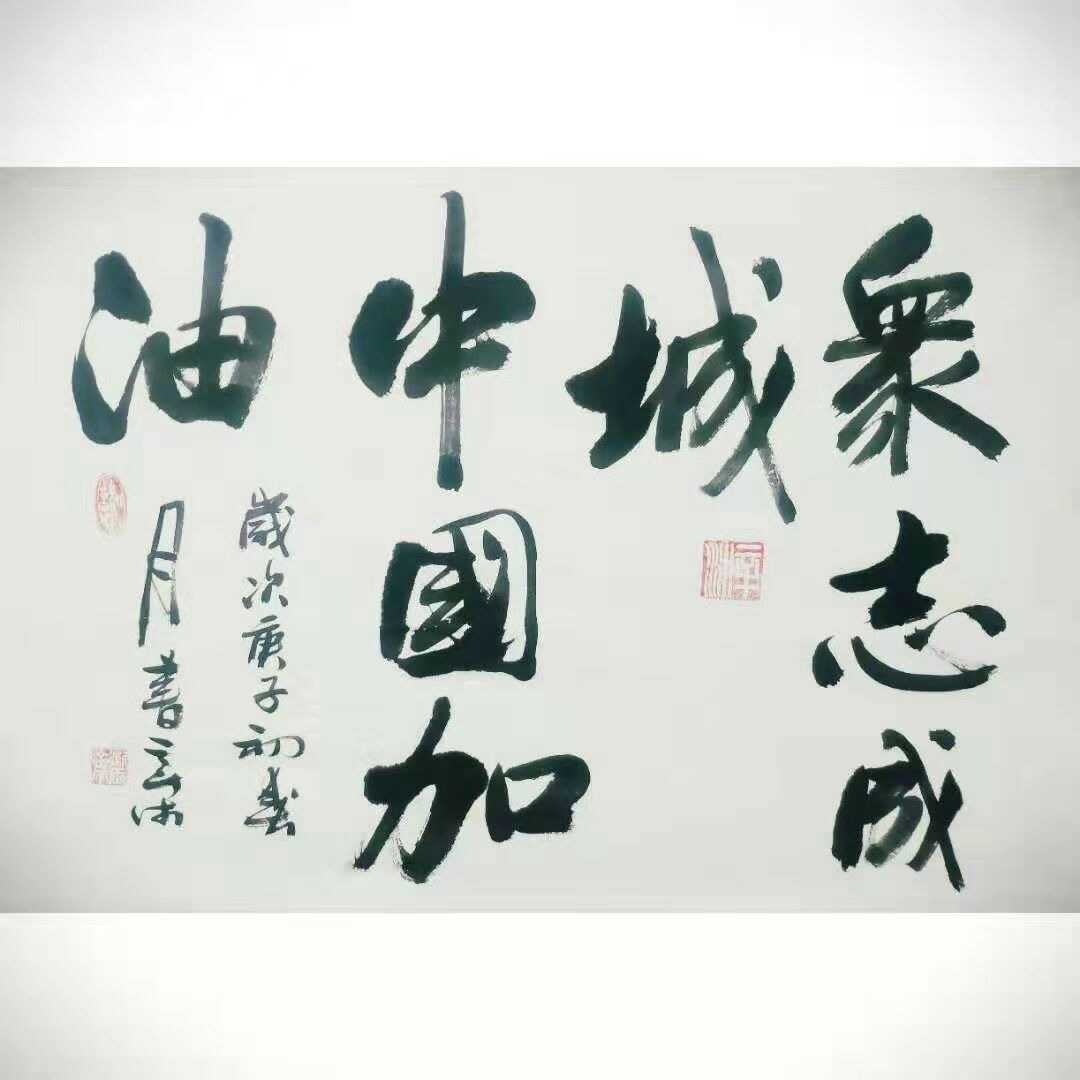 眾志成
城
中國加
油
歲次庚子初春
月書